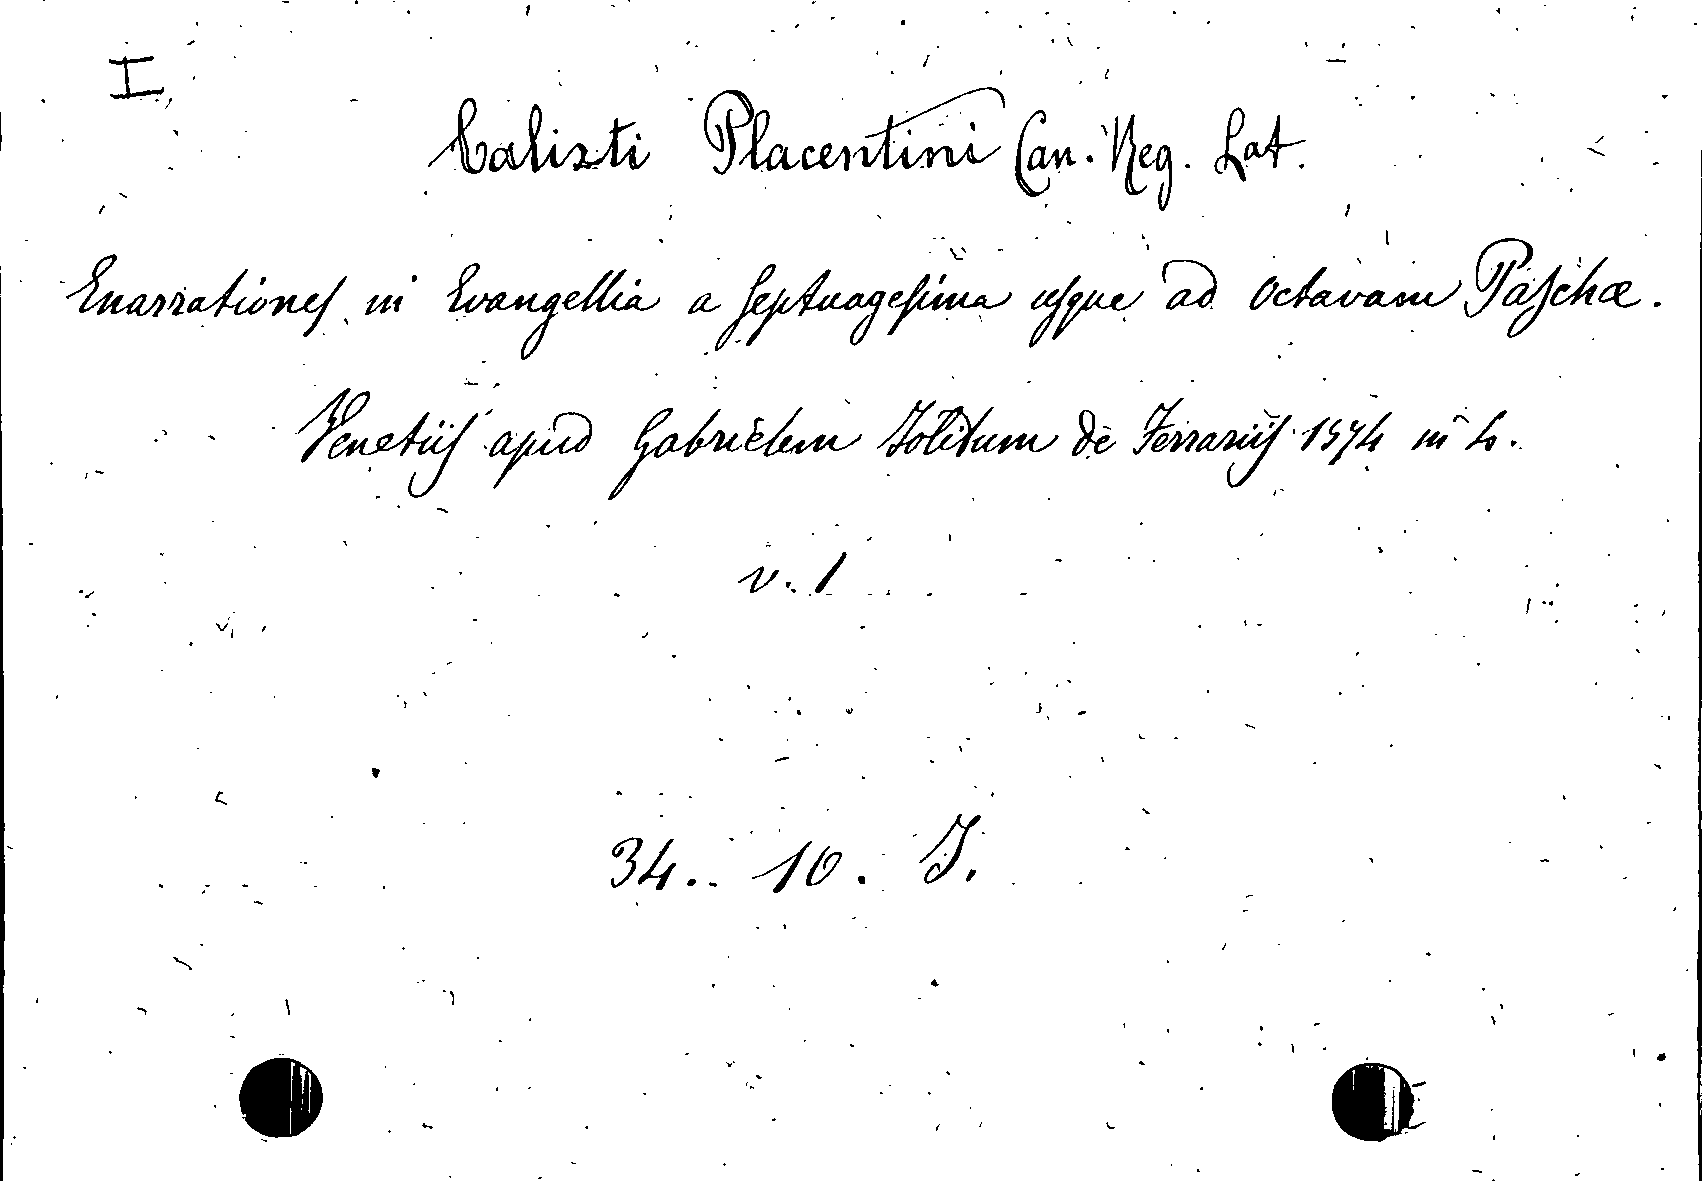 I
Calisti Placentini Can. Reg. Lat.
Enarrationes in Evangellia a septuagesima usque ad octavam Paschæ.
Venetiis apud Gabrielem Jolitum de Ferrariis 1574 in 4.
v. 1
34. 10. J.